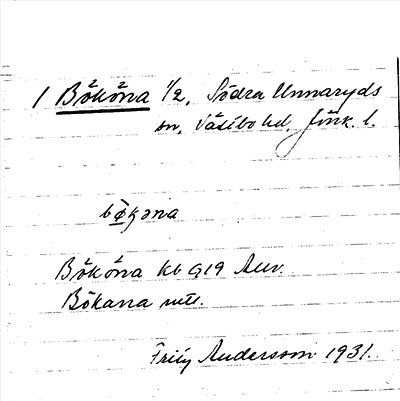 1 Bököna 1/2, Södra Unnaryds
sn, Västbo hd, Jönk. l.
Bököna kb G19 Auv.
Bökana
Fritz Andersson 1931.